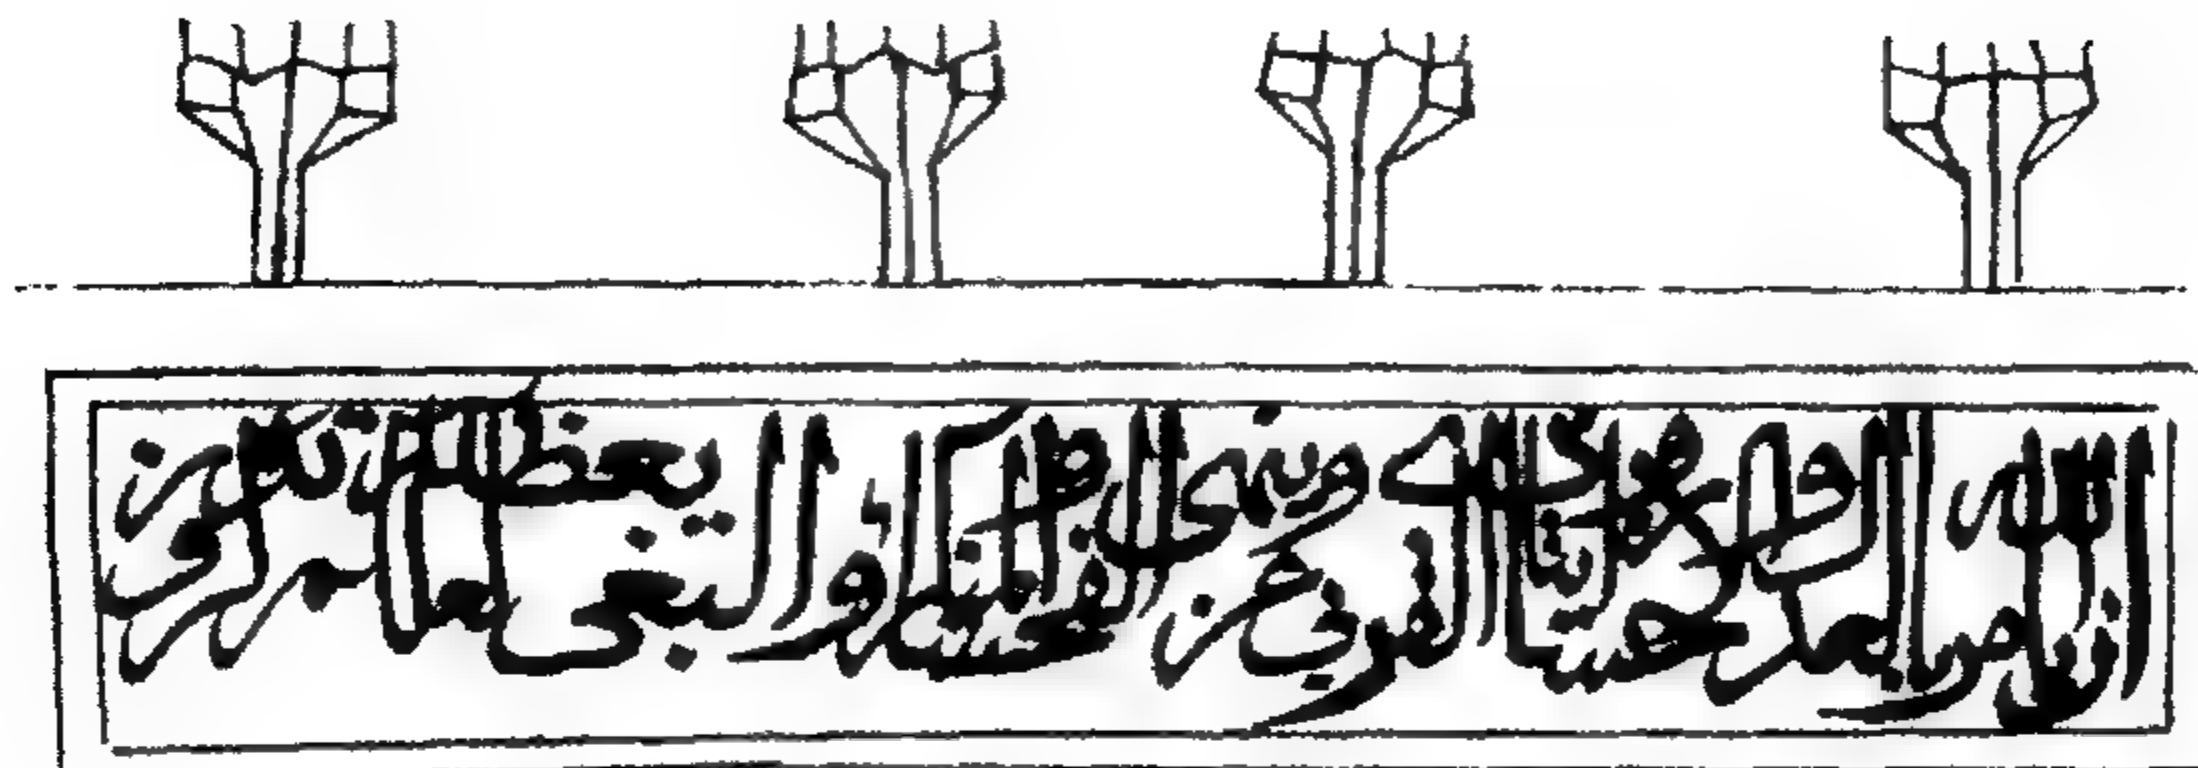 ان الله يامر بالعدل والاحسان وايتاى ذى القربى وينهى عن الفحشا والمنكر والبغى يعظكم لعلكم تذكرون